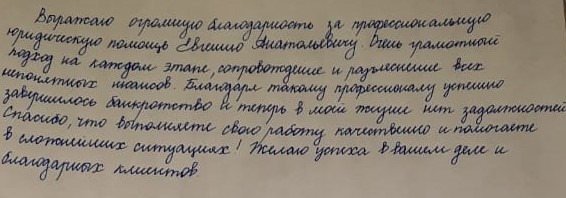 Выражаю огромную благодарность за профессиональную
юридическую помощь Евгению Анатольевичу. Очень грамотный
подход на каждом этапе, сопровождение и разъяснение всех
непонятных нюансов. Благодаря такому профессионалу успешно
завершилось банкротство и теперь в моей жизни нет задолжностей
Спасибо, что выполняете свою работу качественно и помогаете
в сложнейших ситуациях! Желаю успеха в вашем деле и
благодарных клиентов.